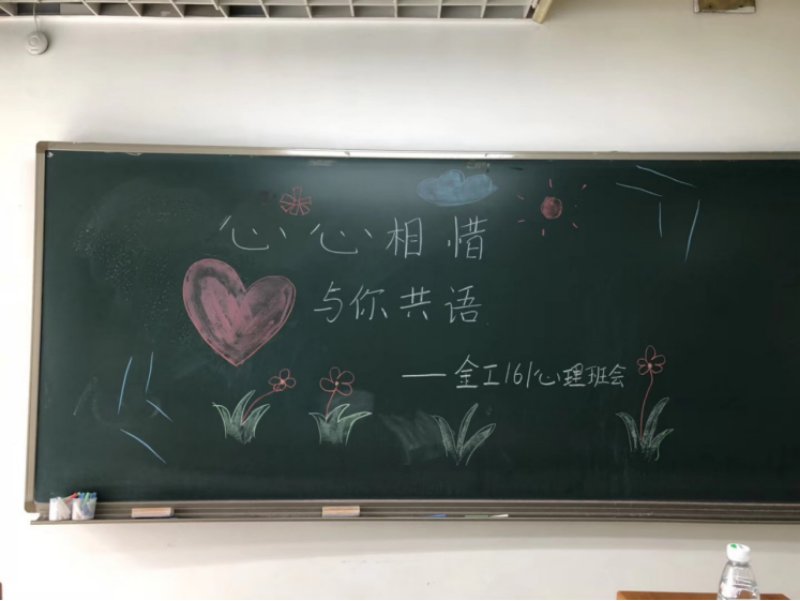 心心相惜
与你共语
——金工161心理班会